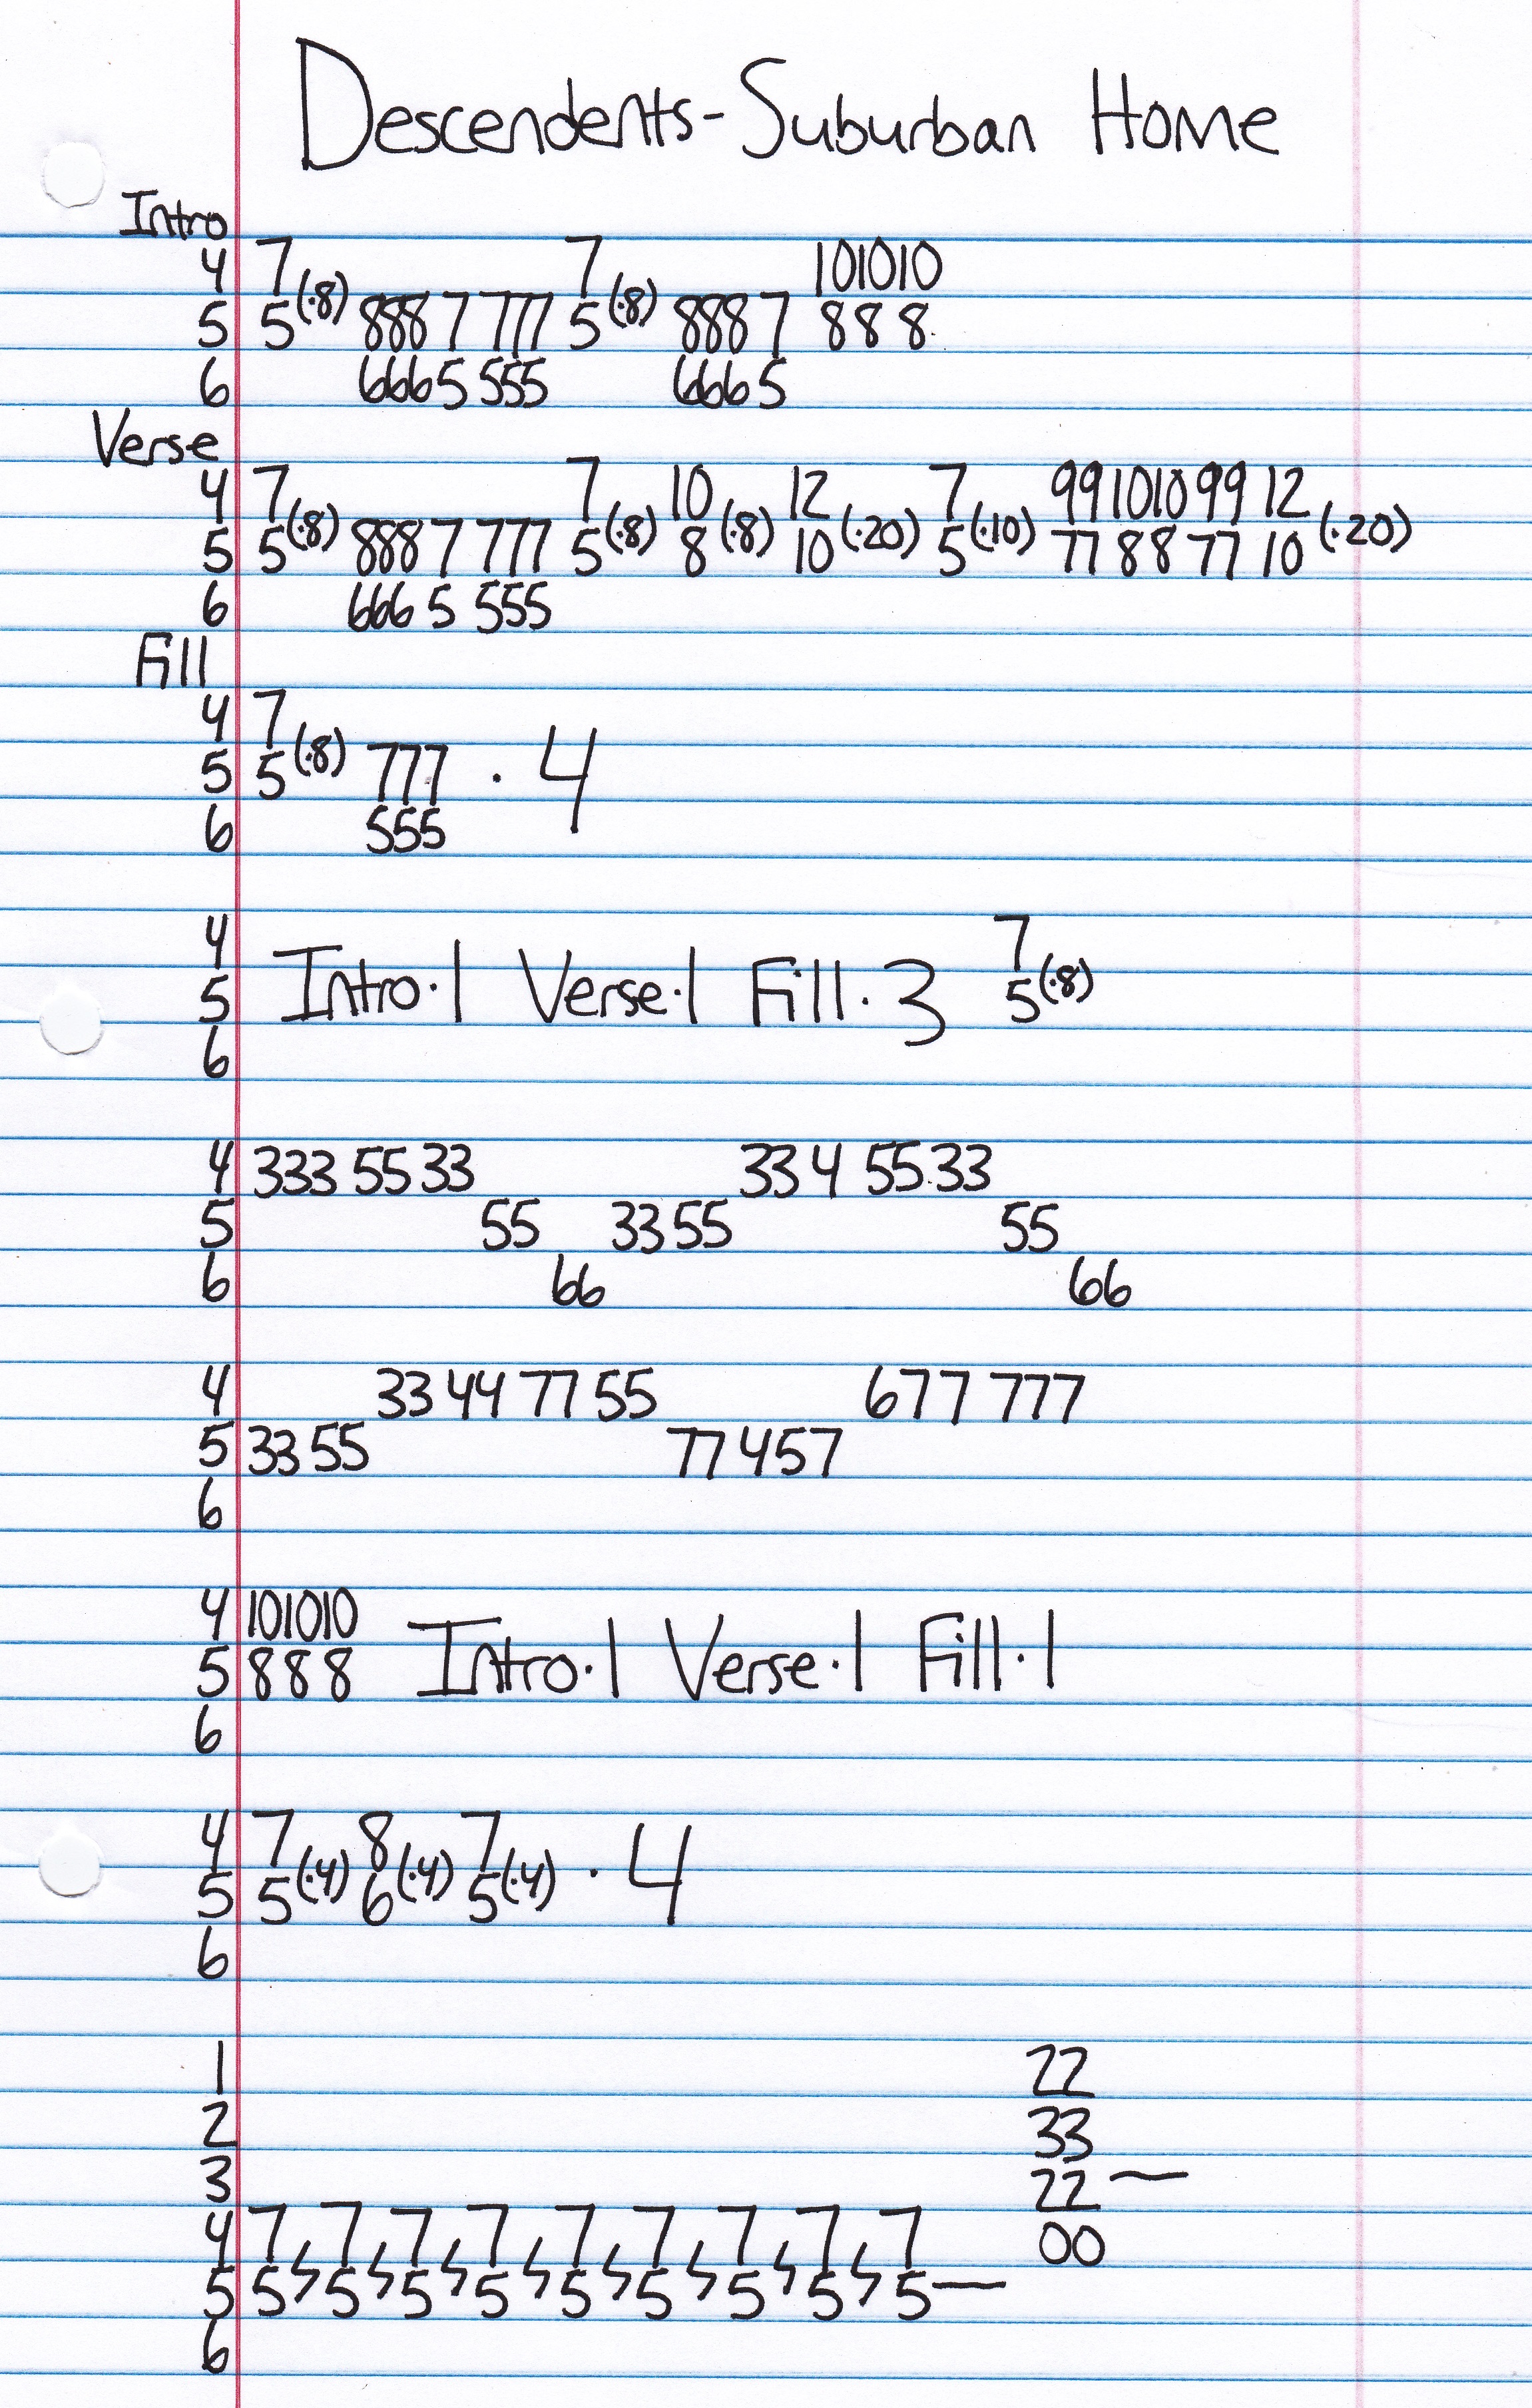 Descendents-Suburban Home
Intro
4 7 7 101010
5 5(·8) 888 7 777 5(·8) 888 7 8 8 8
6 666 5 555 666 5
Verse
4 7 7 10 12 7 99 1010 99 12
5 5(·8) 888 7 777 5(·8) 8(·8) 10(·20) 5(·10) 77 88 77 10(·20)
6 666 5 555
Fill
4 7
5 5(·8) 777 · 4
6 555
4 7
5 Intro·1 Verse·1 Fill·3 5(·8)
6
4 333 55 33 33 4 55 33
5 55 33 55 55
6 66 66
4 33 44 77 55 677 777
5 33 55 77 457
6
4 101010
5 8 8 8 Intro·1 Verse·1 Fill·1
6
4 7 8 7
5 5(·4) 6(·4) 5(·4) · 4
6
1 22
2 33
3 22 —
4 7 7 7 7 7 7 7 7 7 00
5 5 5 5 5 5 5 5 5 5 —
6